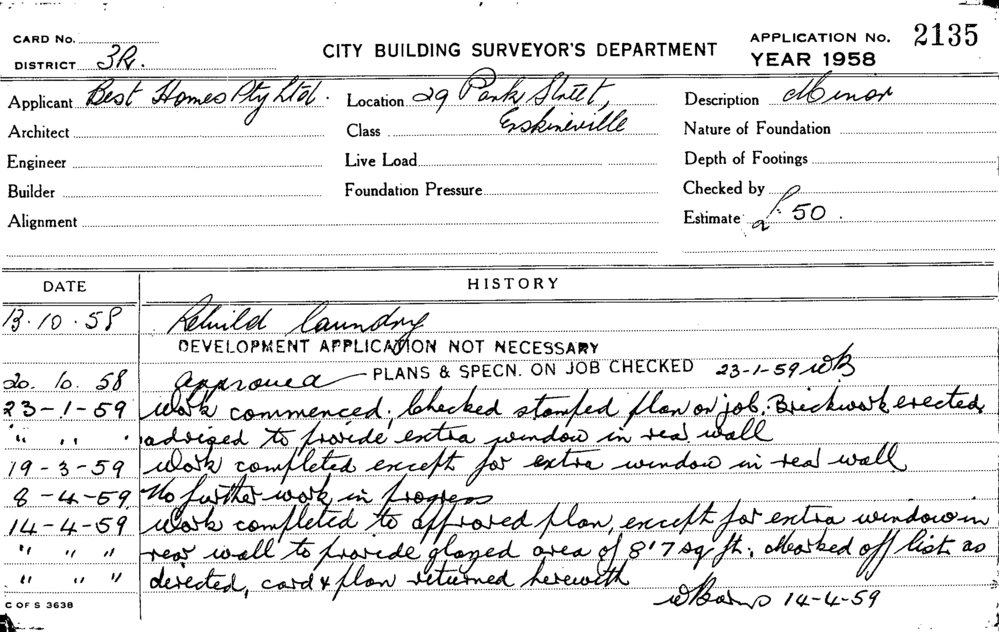 CARD No.
DISTRICT 3R.
CITY BUILDING SURVEYOR'S DEPARTMENT
APPLICATION No. 2135
YEAR 1958
Applicant Best Homes Pty Ltd. Location 29 Park Street, Description Minor
Architect Class Erskineville Nature of Foundation
Engineer Live Load Depth of Footings
Builder Foundation Pressure Checked by
Alignment Estimate £50.
DATE HISTORY
13.10.58 Rebuild laundry
DEVELOPMENT APPLICATION NOT NECESSARY
20.10.58 Approved PLANS & SPECN. ON JOB CHECKED 23-1-59 WB
23-1-59 Work commenced, Checked stamped plan on job. Brickwork erected,
" " " advised to provide extra window in rear wall
19-3-59 Work completed except for extra window in rear wall
8-4-59 No further work in progress
14-4-59 Work completed to approved plan, except for extra window in
" " " rear wall to provide glazed area of 8'7 sq ft. Marked off list as
" " " directed, card & plan returned herewith
14-4-59
C OF S 3638